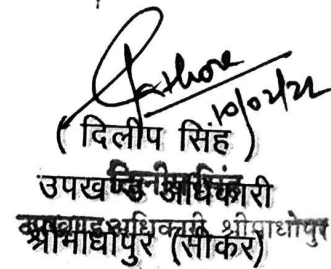 Rathore
10/02/22
( दिलीप सिंह )
उपखण्ड अधिकारी
दिलीप सिंह
उपखण्ड अधिकारी श्रीमाधोपुर
श्रीमाधोपुर (सीकर)